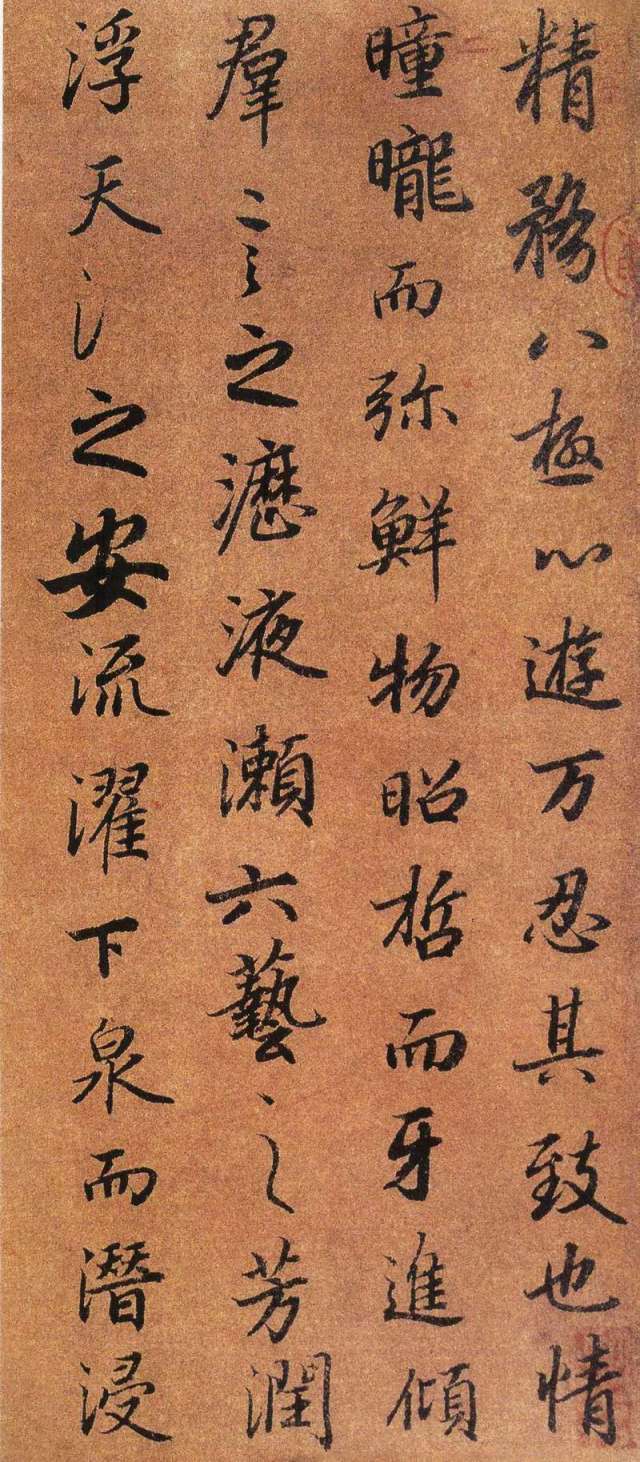 精務八極心遊万忍其致也情
曈曨而弥鮮物昭哲而牙進傾
羣言之瀝液瀨六藝之芳潤
浮天氵之安流濯下泉而潛浸